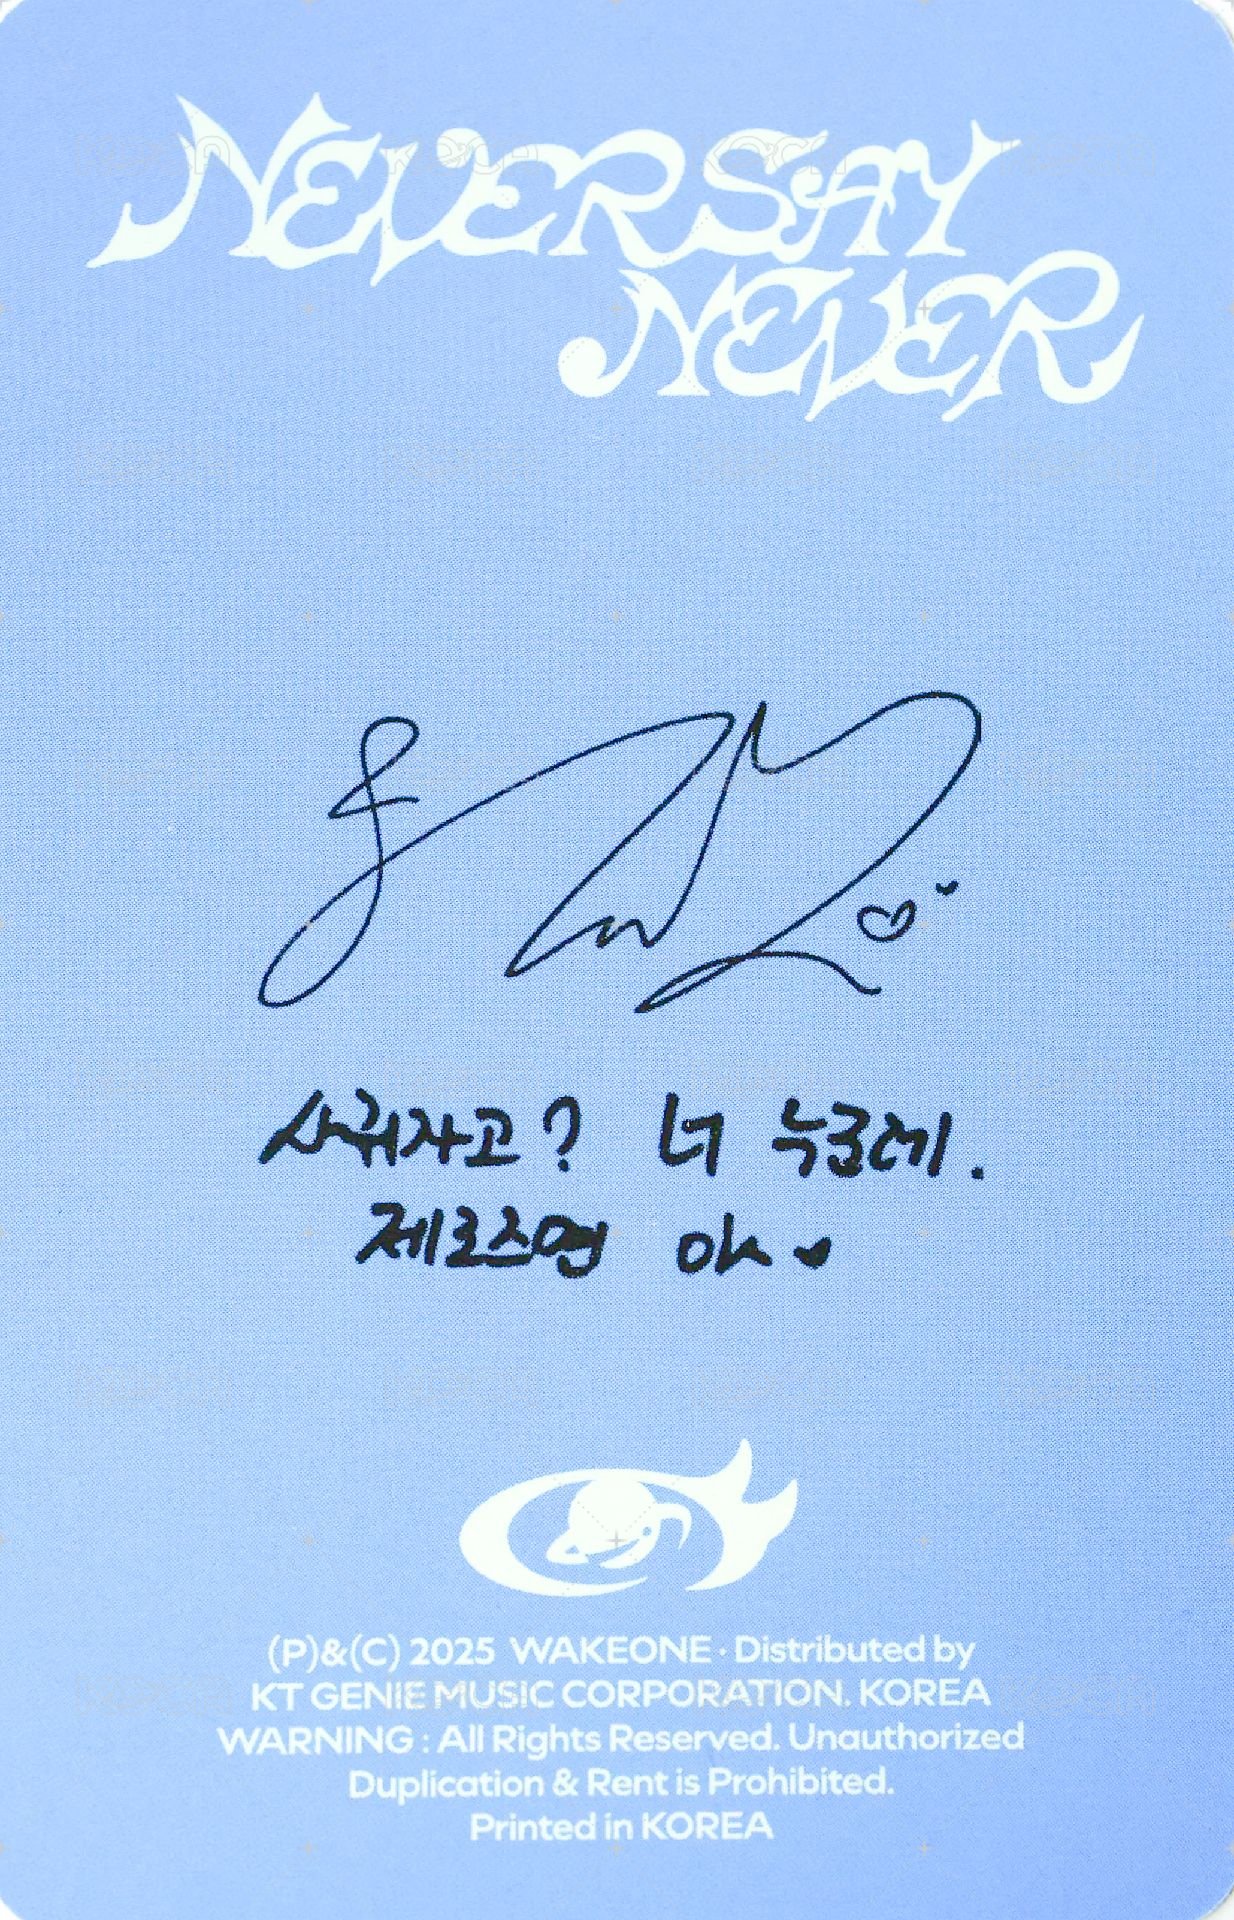 NEVER SAY
NEVER
사귀자고? 너 누군데.
제로즈면 ok
(P)&(C) 2025 WAKEONE · Distributed by
KT GENIE MUSIC CORPORATION. KOREA
WARNING : All Rights Reserved. Unauthorized
Duplication & Rent is Prohibited.
Printed in KOREA